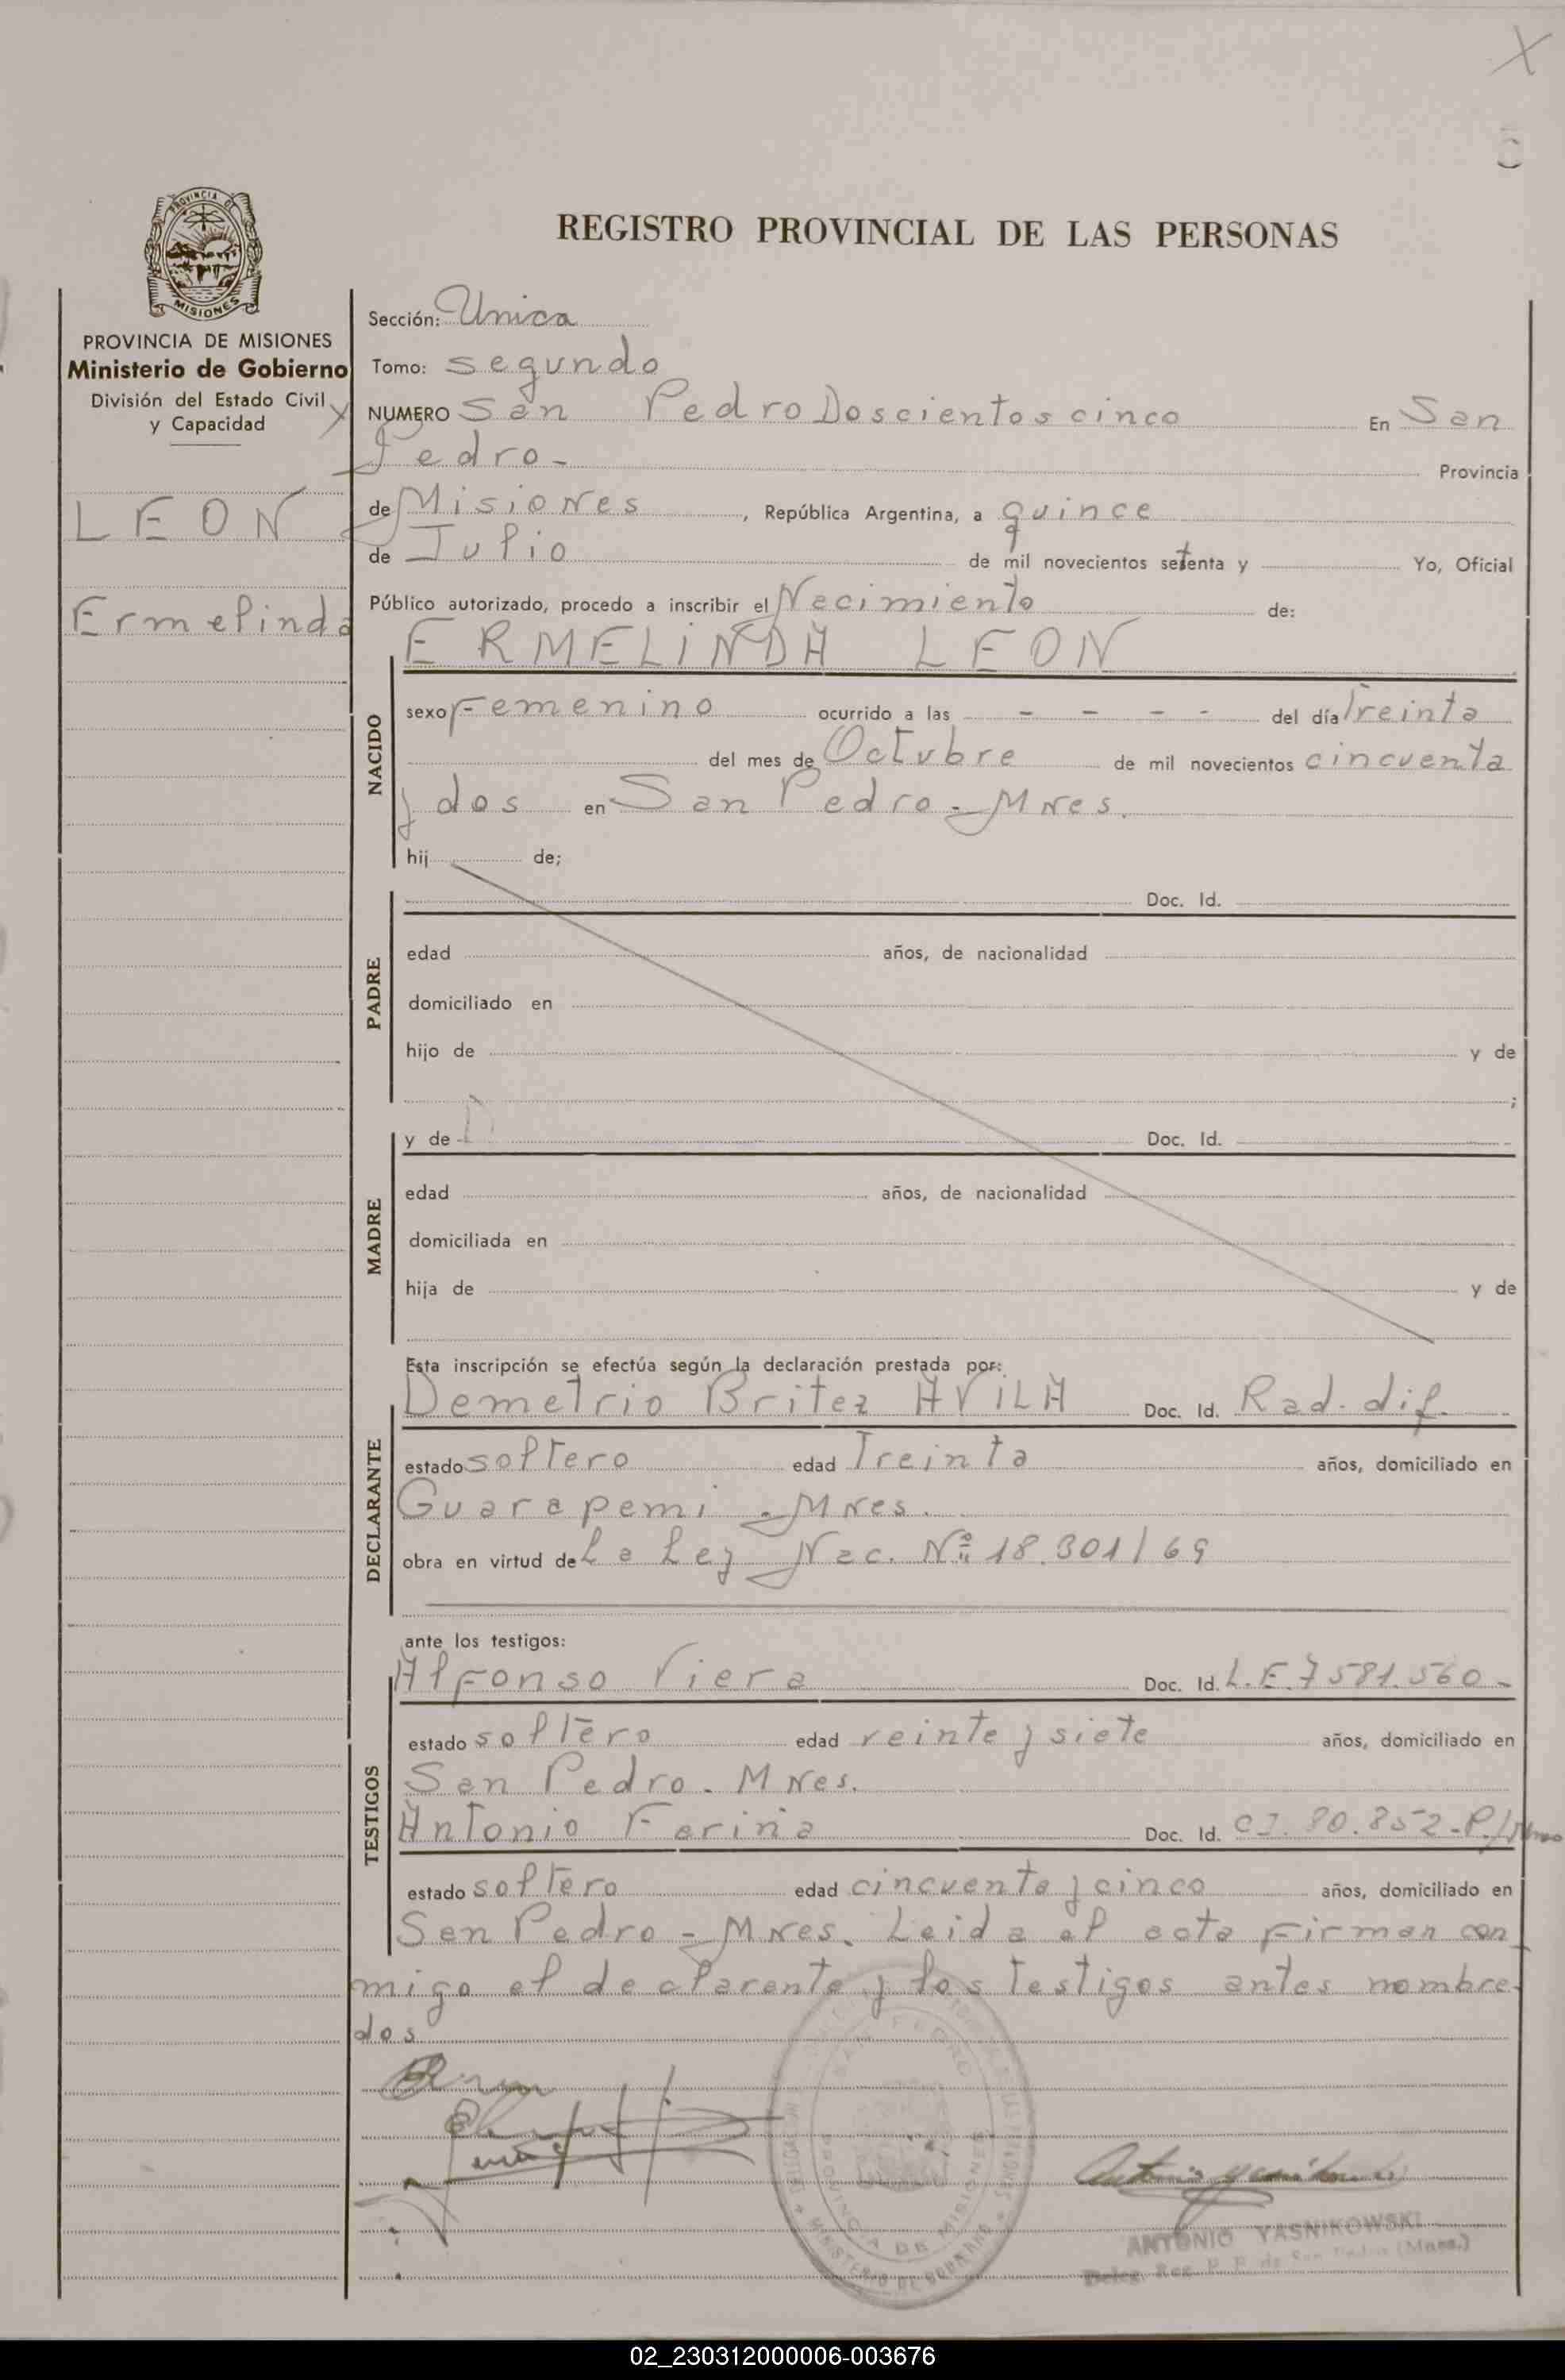 X
REGISTRO PROVINCIAL DE LAS PERSONAS
PROVINCIA DE
MISIONES
PROVINCIA DE MISIONES
Ministerio de Gobierno
División del Estado Civil
y Capacidad
LEON
Ermelinda
Sección: Unica
Tomo: segundo
NUMERO San Pedro Doscientos cinco En San
Pedro- Provincia
de Misiones, República Argentina, a quince
de Julio de mil novecientos setenta y Yo, Oficial
Público autorizado, procedo a inscribir el Nacimiento de:
ERMELINDA LEON
NACIDO
sexo Femenino ocurrido a las - - - - del día Treinta
del mes de Octubre de mil novecientos cincuenta
y dos en San Pedro - Mnes.
hij de;
PADRE
Doc. Id.
edad años, de nacionalidad
domiciliado en
hijo de y de
;
MADRE
y de Doc. Id.
edad años, de nacionalidad
domiciliada en
hija de y de
Esta inscripción se efectúa según la declaración prestada por:
DECLARANTE
Demetrio Britez AVILA Doc. Id. Rad. dif.
estado soltero edad Treinta años, domiciliado en
Guarapemi - Mnes.
obra en virtud de La Ley Nac. Nº 18.301/69
ante los testigos:
TESTIGOS
Alfonso Viera Doc. Id. L.E. 7581.560-
estado soltero edad veinte y siete años, domiciliado en
San Pedro - Mnes.
Antonio Fariña Doc. Id. CI. 80.852-P./
estado soltero edad cincuenta y cinco años, domiciliado en
San Pedro - Mnes. Leida el acta firman con
migo el declarante y los testigos antes nombra-
dos
SAN PEDRO
PROVINCIA DE MISIONES
MINISTERIO DE GOBIERNO
ANTONIO YASNIKOWSKI
Deleg. Reg. P. P. de San Pedro (Mnes.)
02_230312000006-003676